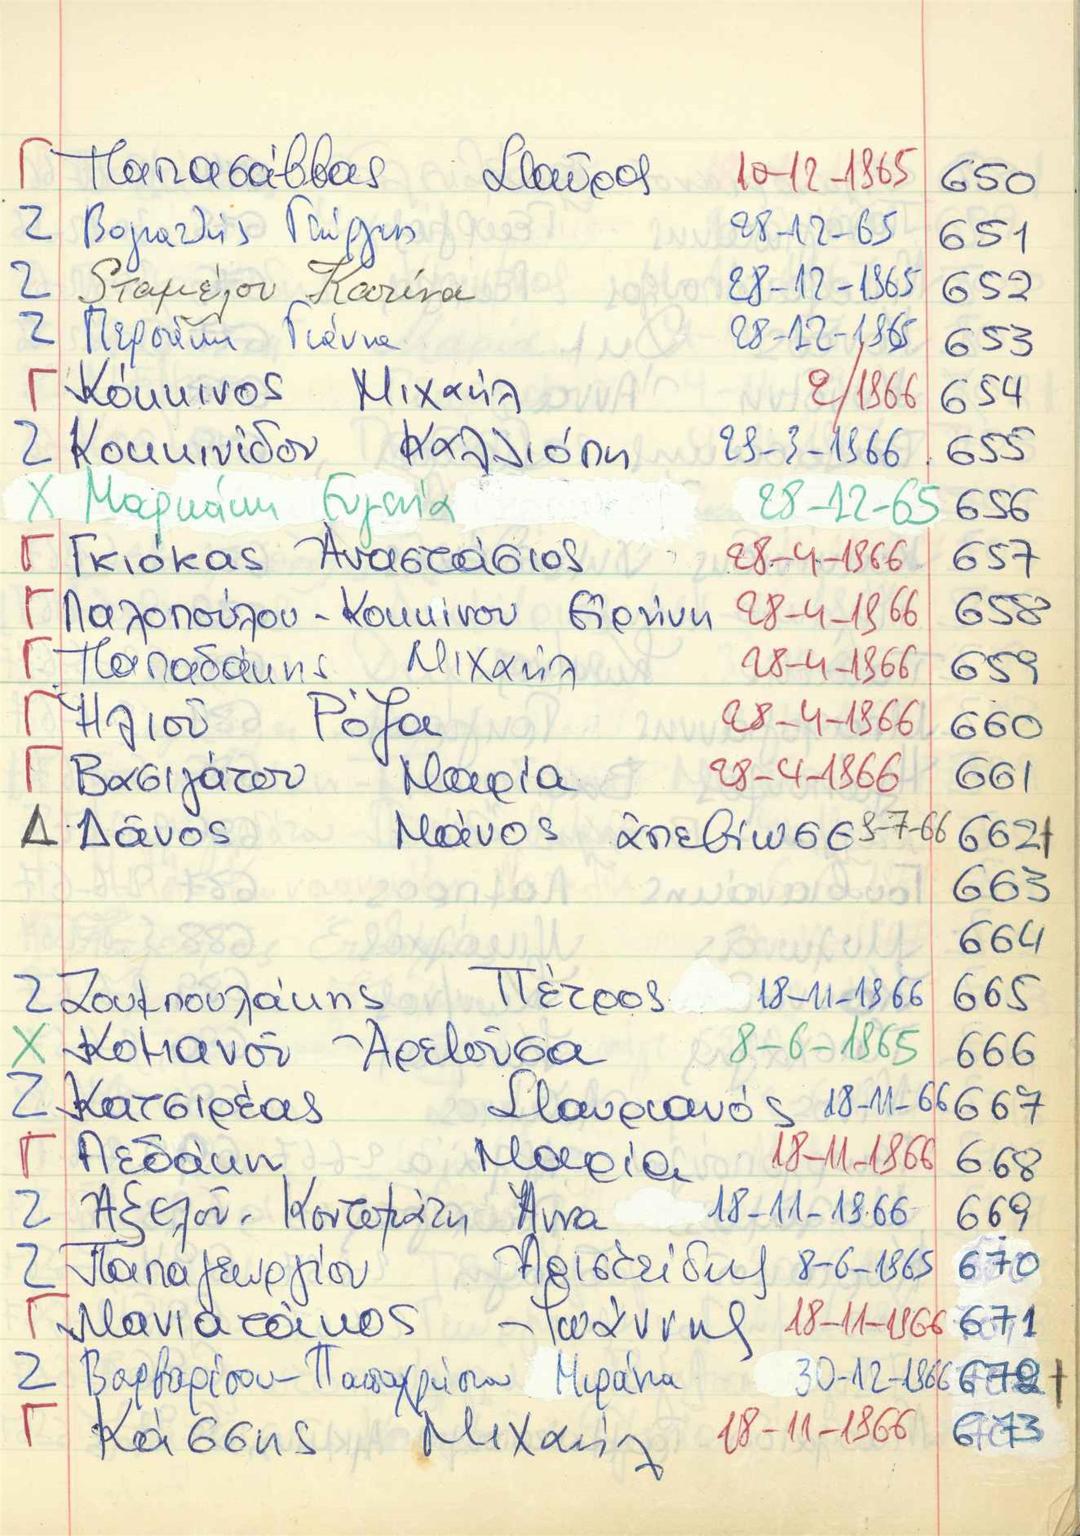 Γ Παπασάββας Σταῦρος 10-12-1965 650
Ζ Βογιατζής Γιώργης 28-12-65 651
Ζ Σταμέλου Κατίνα 28-12-1965 652
Ζ Περσάκη Γιάννα 28-12-1965 653
Γ Κόκκινος Μιχαήλ 2/1966 654
Ζ Κοκκινίδου Καλλιόπη 29-3-1966 655
Χ Μαρκάκη Ευγενία 28-12-65 656
Γ Γκιόκας Ἀναστάσιος 28-4-1966 657
Γ Παλοπούλου-Κοκκίνου Εἰρήνη 28-4-1966 658
Γ Παπαδάκης Μιχαήλ 28-4-1966 659
Γ Ἠλιοῦ Ρόζα 28-4-1966 660
Γ Βασιλάτου Μαρία 28-4-1966 661
Δ Δάνος Μάνος ἀπεβίωσε 9-7-66 662
663
664
Ζ Ζουμπουλάκης Πέτρος 18-11-1966 665
Χ Κομανοῦ Ἀρετοῦσα 8-6-1965 666
Ζ Κατσιρέας Σταυριανός 18-11-66 667
Γ Λεδάκη Μαρία 18-11-1966 668
Ζ Ἀξελοῦ-Κοντομάτη Ἄννα 18-11-1966 669
Ζ Παπαγεωργίου Ἀριστείδης 8-6-1965 670
Γ Μανιατάκος Ἰωάννης 18-11-1966 671
Ζ Βαρβαρέσου-Παπαχρήστου Μιράντα 30-12-1966 672
Γ Κάσσης Μιχαήλ 18-11-1966 673